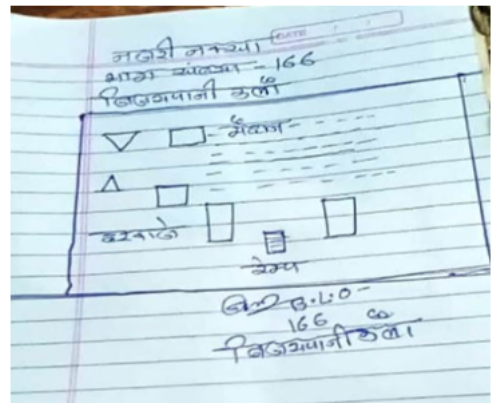 नजरी नक्शा
भाग संख्या - 166
विजयपानी कलाँ
मैदान
दरवाजे
रेम्प
B.L.O -
166
विजयपानी कलाँ